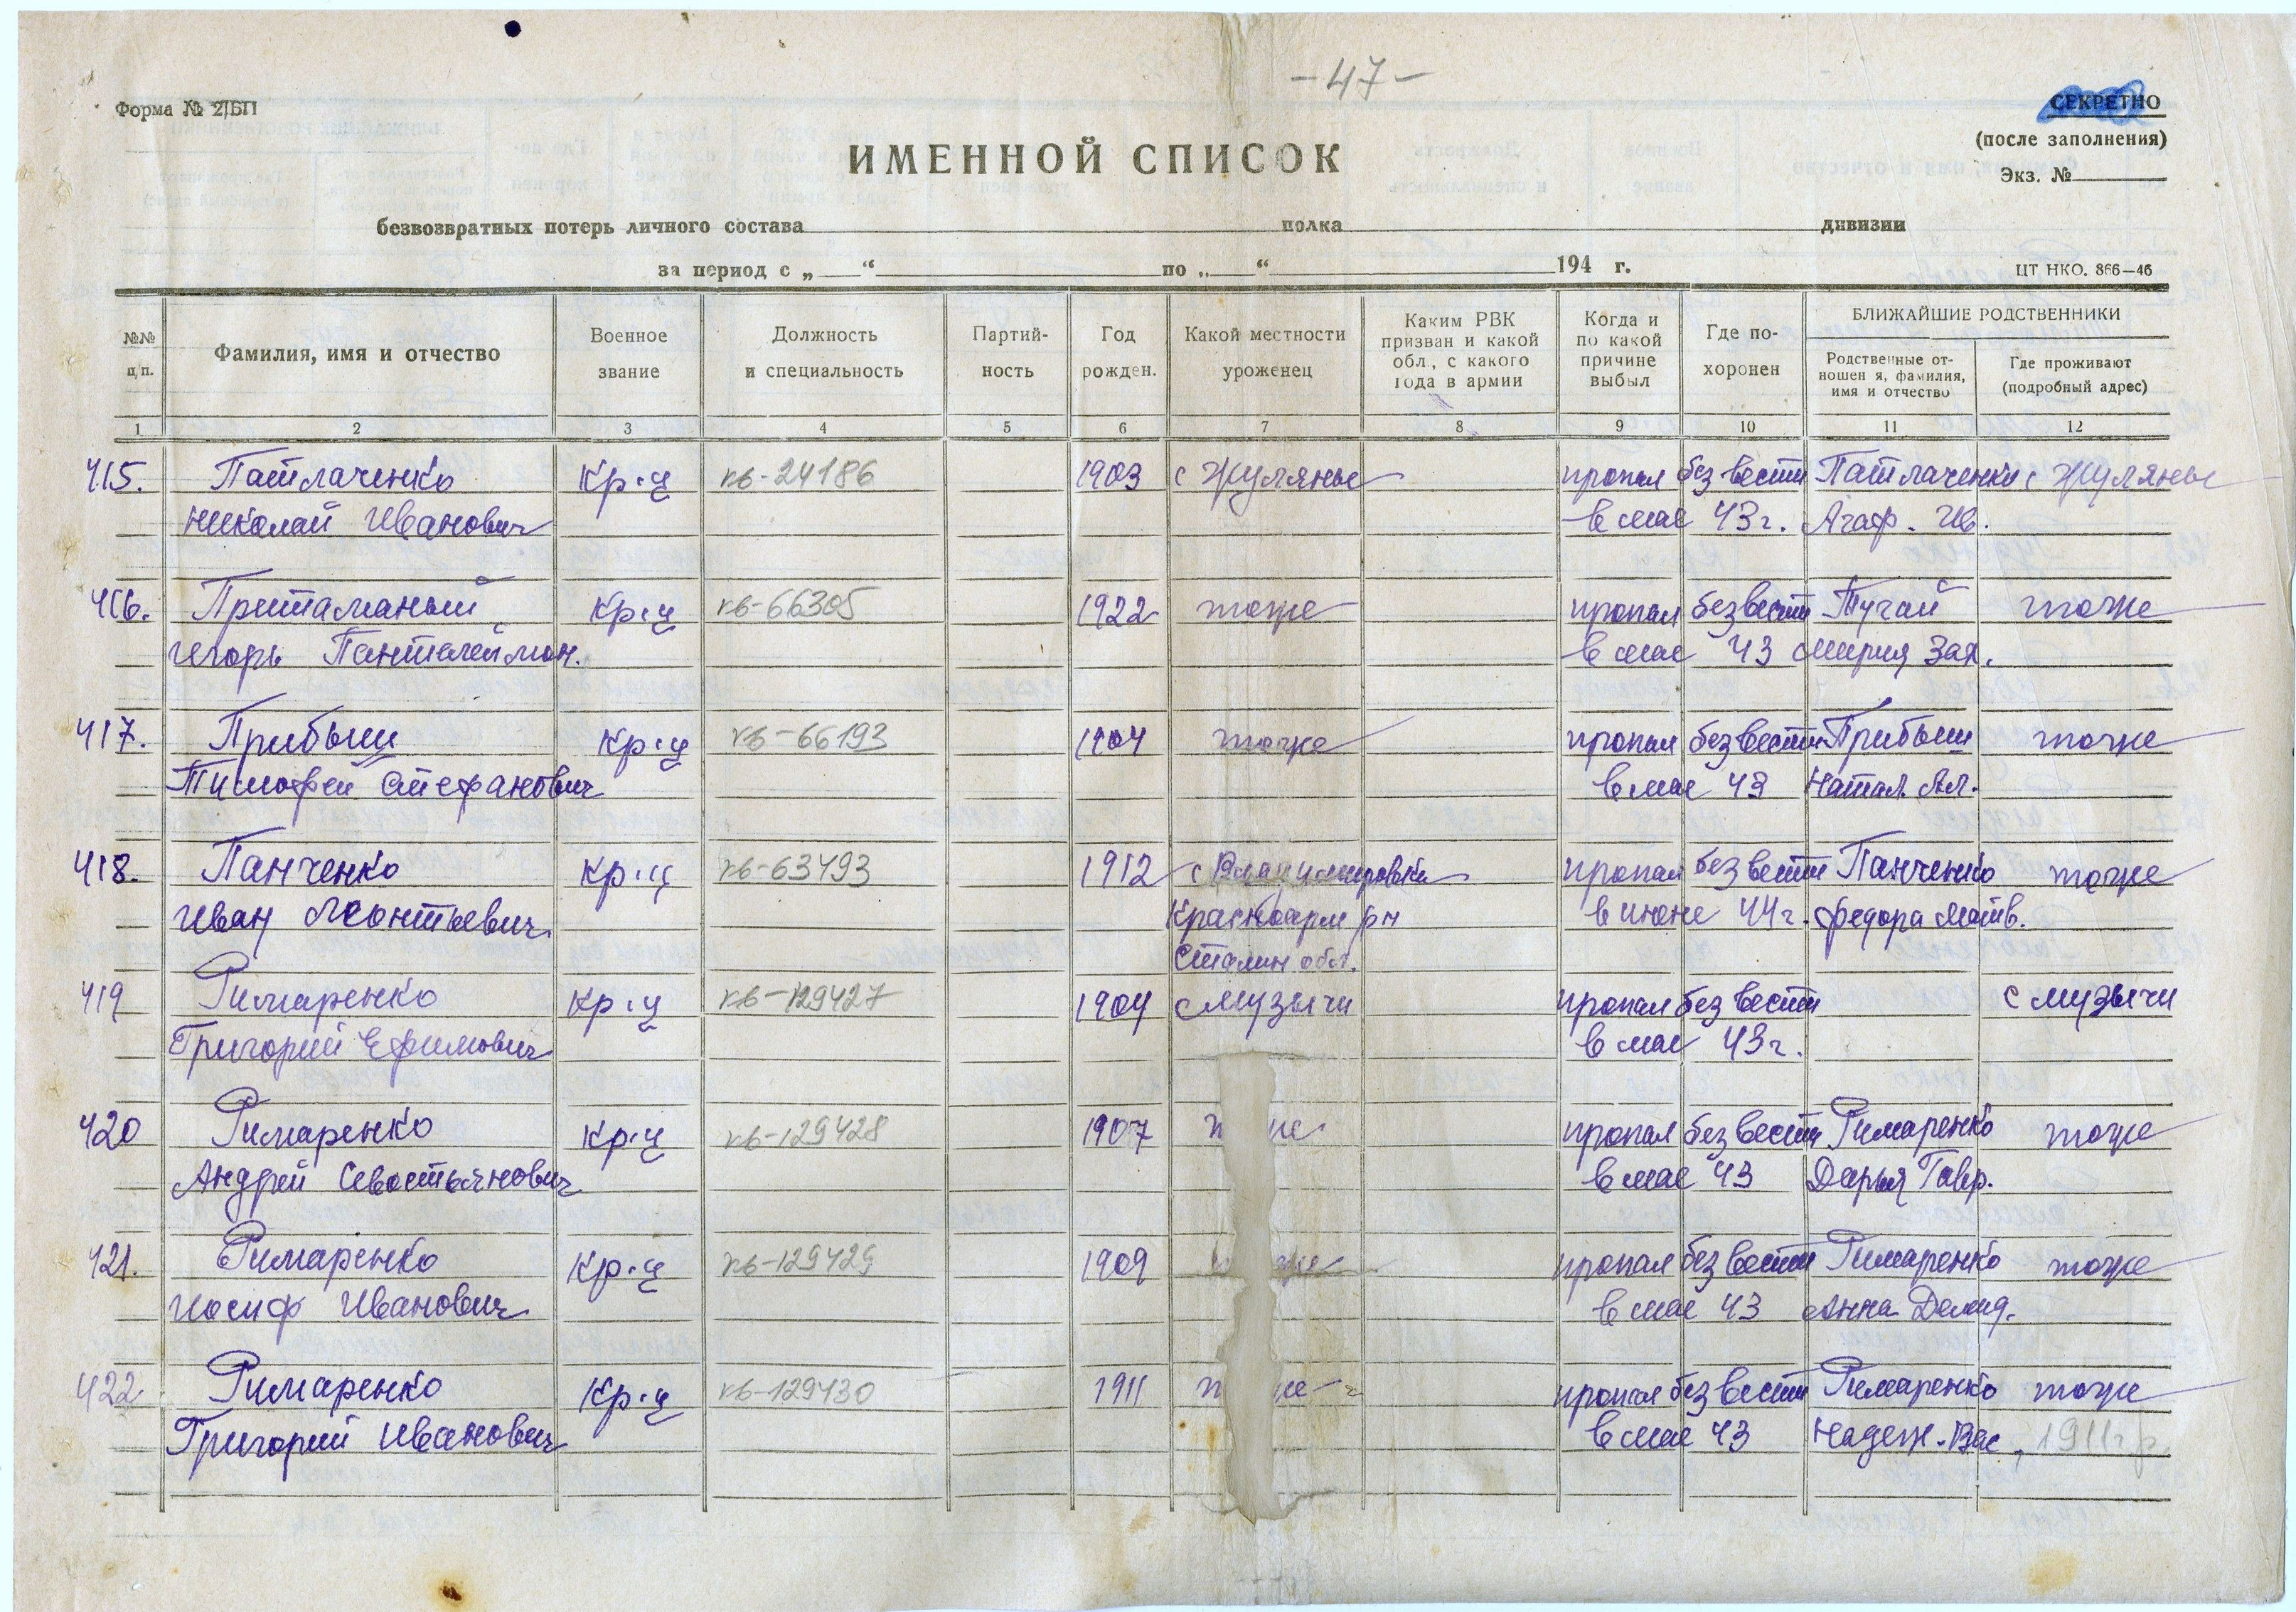 - 47 -
Форма № 2/БП
СЕКРЕТНО
(после заполнения)
Экз. №
ИМЕННОЙ СПИСОК
безвозвратных потерь личного состава полка дивизии
за период с „ “ по „ “ 194 г.
ЦТ НКО. 866—46
№№ п/п.
Фамилия, имя и отчество
Военное звание
Должность и специальность
Партий-ность
Год рожден.
Какой местности уроженец
Каким РВК призван и какой обл., с какого года в армии
Когда и по какой причине выбыл
Где по-хоронен
БЛИЖАЙШИЕ РОДСТВЕННИКИ
Родственные от-ношен я, фамилия, имя и отчество
Где проживают (подробный адрес)
1 2 3 4 5 6 7 8 9 10 11 12
415. Патлаченко Кр-ц кв-24186 1903 с Жуляны пропал без вести Патлаченко с Жуляны
Николай Иванович в мае 43г. Агаф. Ив.
416. Притаманый Кр-ц кв-66305 1922 тоже пропал без вести Тугай тоже
Игорь Пантелеймон. в мае 43 Мария Зах.
417. Прибыш Кр-ц кв-66193 1904 тоже пропал без вести Прибыш тоже
Тимофей Стефанович в мае 43 Натал. Ал.
418. Панченко Кр-ц кв-63493 1912 с Владимировка пропал без вести Панченко тоже
Иван Леонтьевич Красноарм р-н в июне 44г. Федора Матв.
Сталин обл.
419 Римаренко Кр-ц кв-129427 1904 с Музычи пропал без вести с Музычи
Григорий Ефимович в мае 43г.
420 Римаренко Кр-ц кв-129428 1907 пропал без вести Римаренко тоже
Андрей Севостьянович в мае 43 Дарья Гавр.
421. Римаренко Кр-ц кв-129429 1909 пропал без вести Римаренко тоже
Иосиф Иванович в мае 43 Анна Демид.
422 Римаренко Кр-ц кв-129430 1911 пропал без вести Римаренко тоже
Григорий Иванович в мае 43 Надеж. Вас. 1911 г.р.